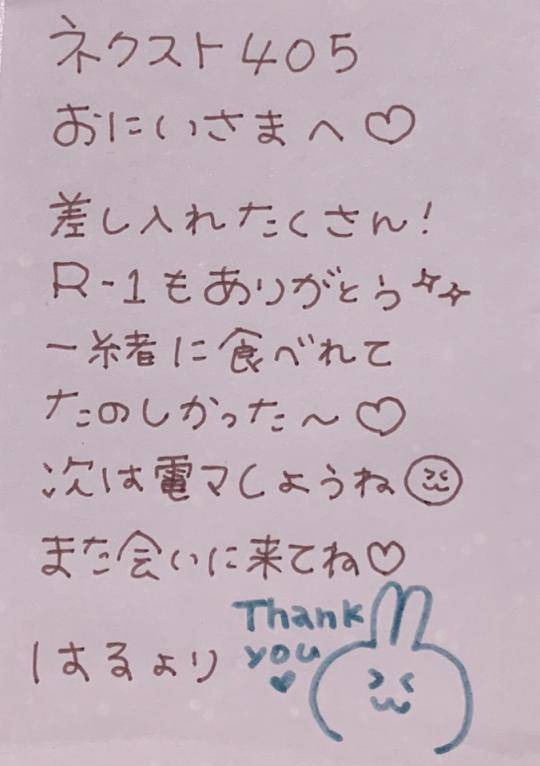 ネクスト405
おにいさまへ♡
差し入れたくさん!
R-1もありがとう✨
一緒に食べれて
たのしかった〜♡
次は電マしようね
また会いに来てね♡
はるより
Thank
you
♥